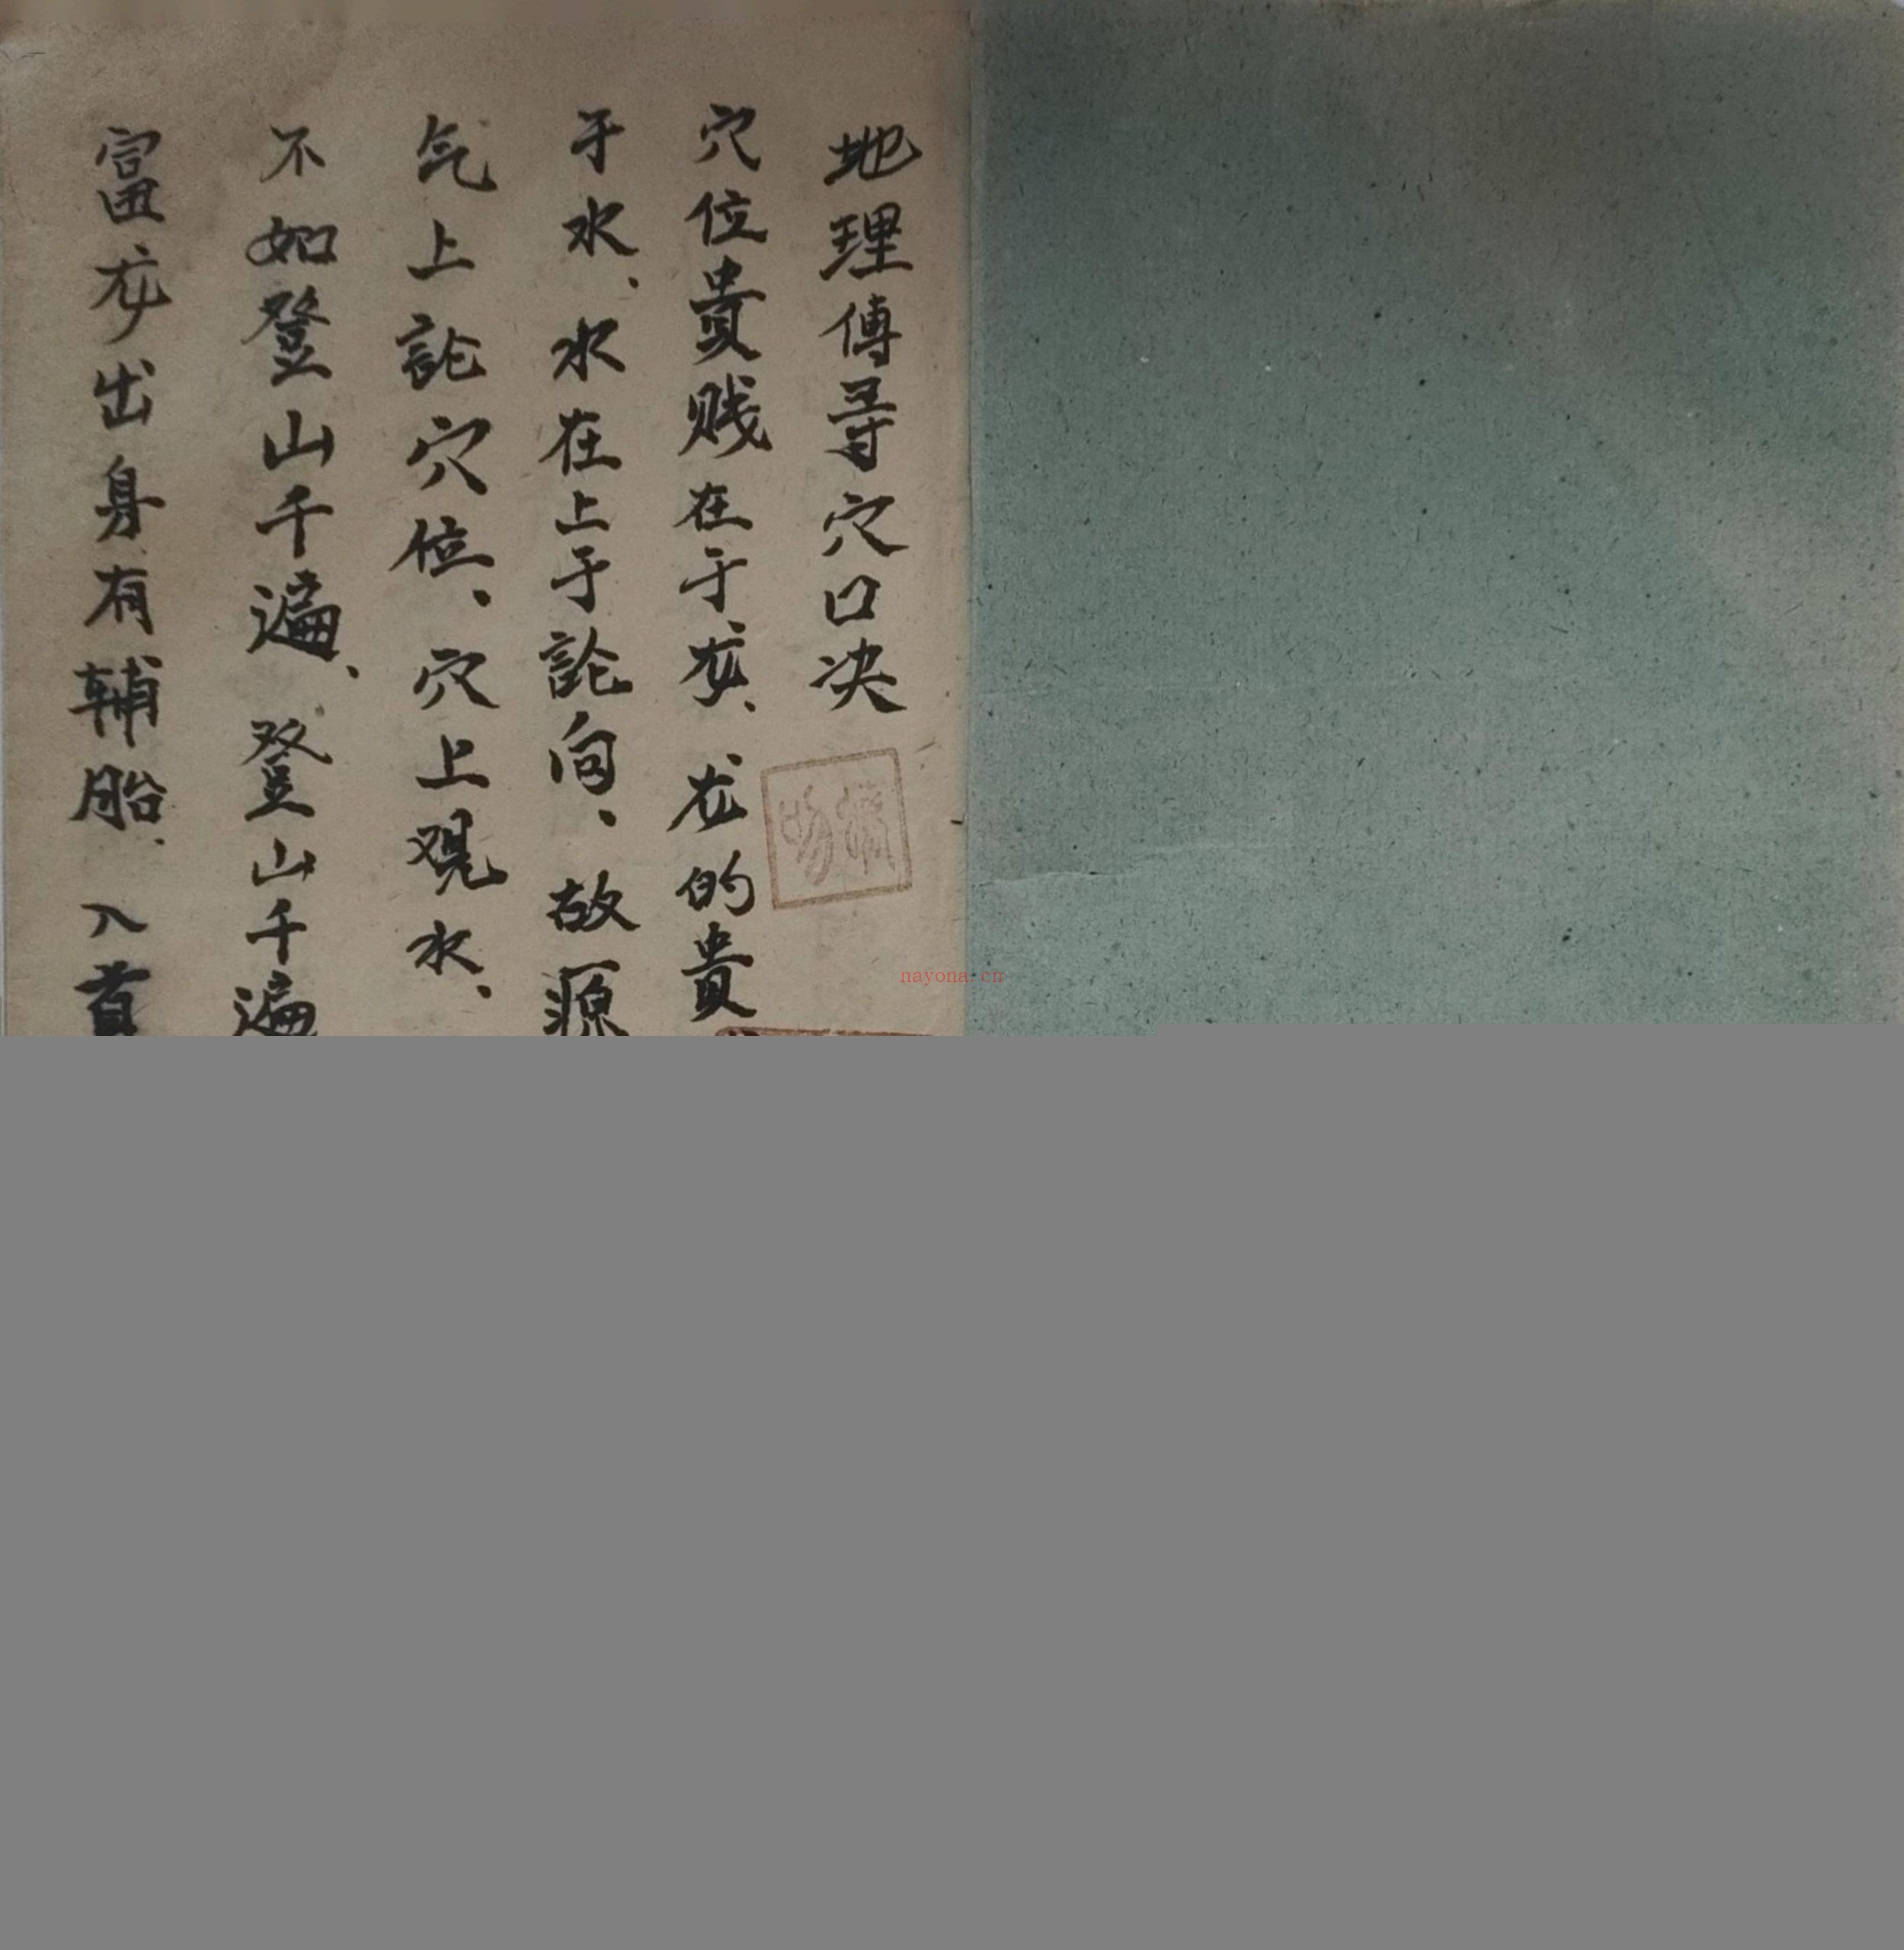 地理傳尋穴口决
穴位貴贱在于龙、龙的貴
于水、水在上于論向、故源
气上論穴位、穴上观水、
不如登山千遍、登山千遍
富龙出身有輔胎、入首
nayona.cn